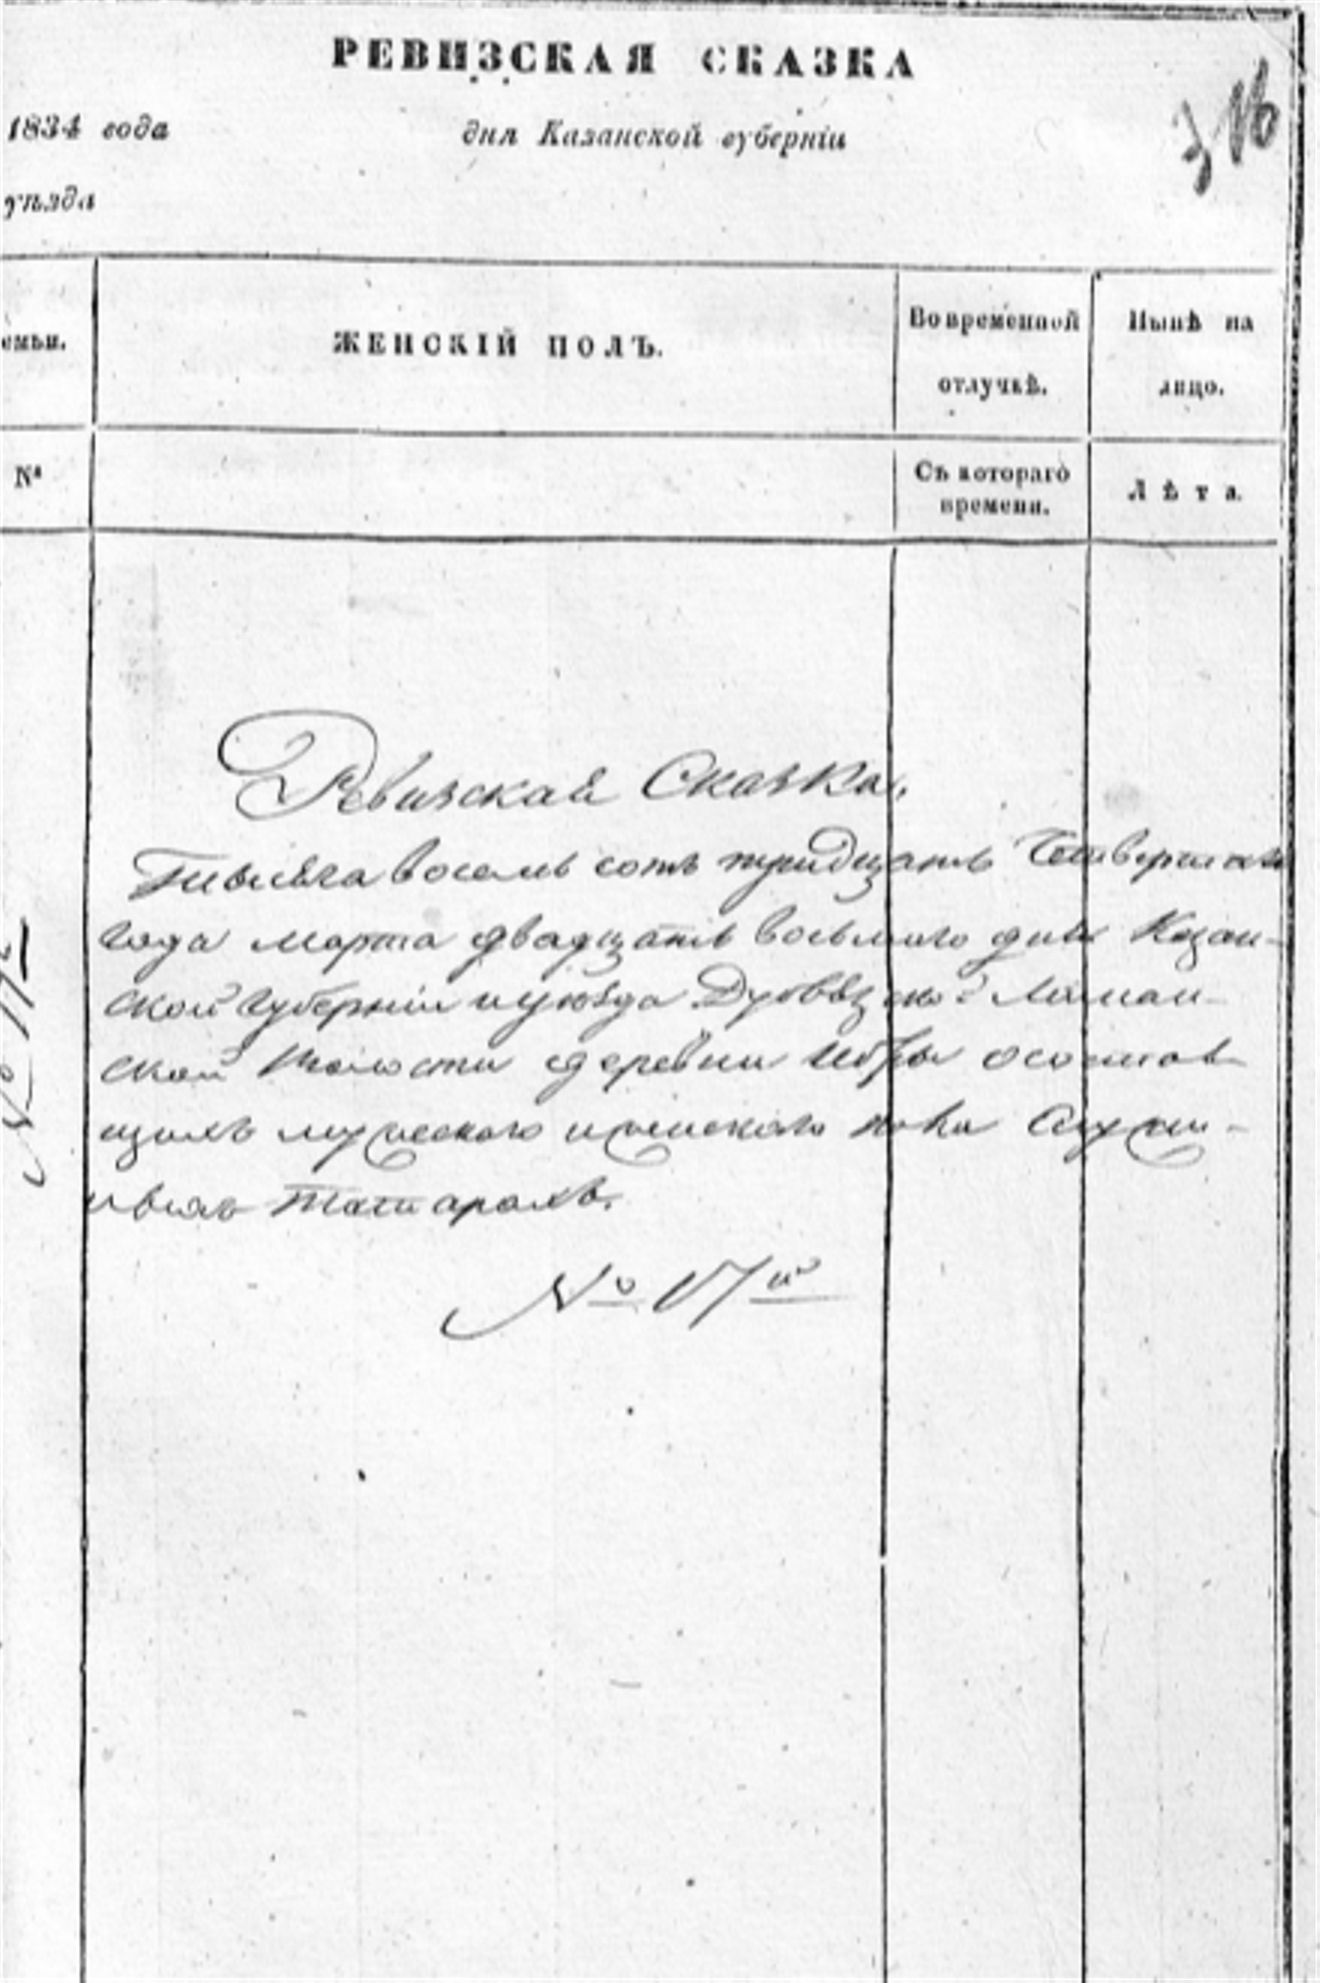 РЕВИЗСКАЯ СКАЗКА
1834 года дня Казанской губерніи
уѣзда
емьи. ЖЕНСКІЙ ПОЛЪ. Во временной отлучкѣ. Нынѣ на лицо.
№ Съ котораго времени. Лѣта.
Ревизская Сказка,
Тысяча восемь сотъ тридцать Четвертаго
года марта двадцать восьмаго дня Казан-
ской Губерніи и уѣзда
ской Волости деревни о состояв-
щихъ мужескаго и женскаго пола Служи-
выхъ Татарахъ.
№ 17й